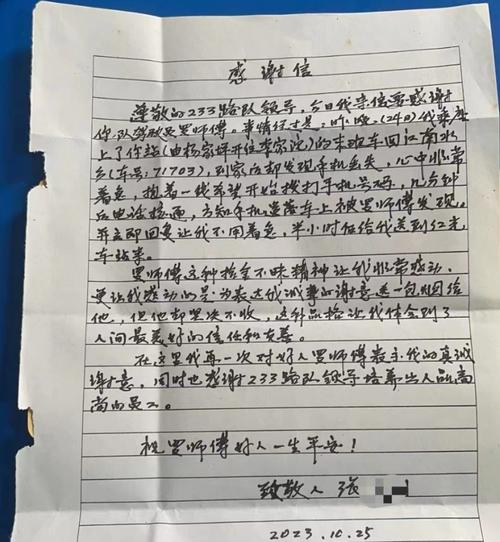 感谢信
尊敬的233路队领导，今日我来信要感谢
你队驾驶员罗师傅。事情经过是：昨晚，(24日)我乘座
上了你站(由杨家坪开往李家沱)的末班车回江南水
乡(车号：71703)，到家后却发现手机丢失，心中非常
着急，抱着一线希望开始拨打手机号码，几分钟
后电话接通，方知手机遗落车上被罗师傅发现，
并立即回复让我不用着急，半小时后给我送到红光
车站来。
罗师傅这种拾金不昧精神让我非常感动，
更让我感动的是为表达我诚挚的谢意送一包烟给
他，但他却坚决不收，这种品格让我体会到了
人间最美好的信任和友善。
在这里我再一次对好人罗师傅表示我的真诚
谢意，同时也感谢233路队领导培养出人品高
尚的员工。
祝罗师傅好人一生平安！
致敬人 张
2023.10.25